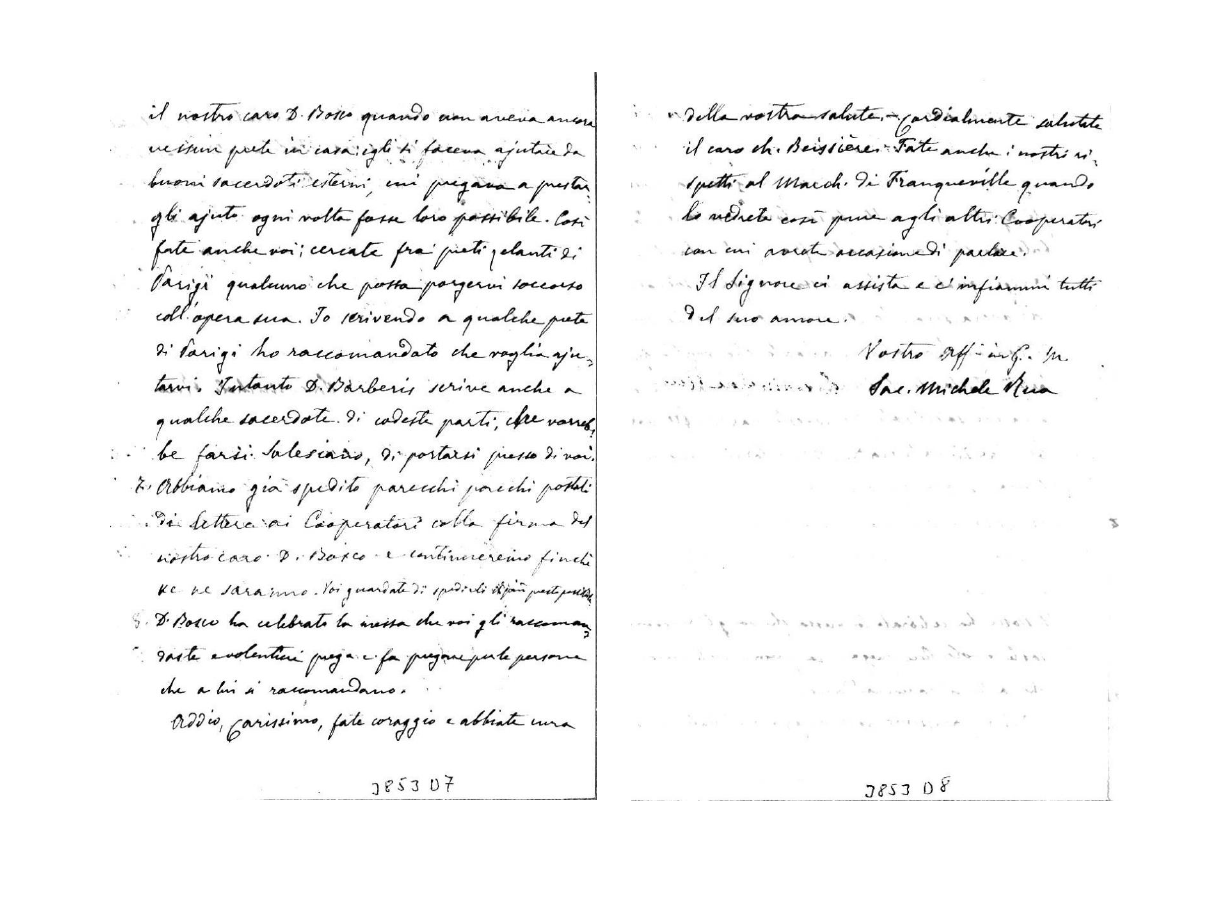 il nostro caro D. Bosco quando non aveva ancora
nessun prete in casa: egli si faceva ajutare da
buoni sacerdoti esterni, cui pregava a prestar
gli ajuto ogni volta fosse loro possibile. Così
fate anche voi; cercate fra i preti zelanti di
Parigi qualcuno che possa porgervi soccorso
coll'opera sua. Io scrivendo a qualche prete
di Parigi ho raccomandato che voglia aju-
tarvi. Intanto D. Barberis scrive anche a
qualche sacerdote di codeste parti, che vorreb-
be farsi Salesiano, di portarsi presso di voi.
7. Abbiamo già spedito parecchi pacchi postali
di lettere ai Cooperatori colla firma del
nostro caro D. Bosco e continueremo finchè
ve ne saranno. Voi guardate di spedirli il più presto possibile
8. D. Bosco ha celebrato la messa che voi gli raccoman
daste e volentieri prega e fa pregare per le persone
che a lui si raccomandano.
Addio, Carissimo, fate coraggio e abbiate cura
J853 D7
della vostra salute. - Cordialmente salutate
il caro ch. Beissière. Fate anche i nostri ri-
spetti al March. di Franqueville quando
lo vedrete così pure agli altri Cooperatori
con cui avrete occasione di parlare.
Il Signore ci assista e c'infiammi tutti
del suo amore.
Vostro aff. in G. M.
Sac. Michele Rua
J853 D8